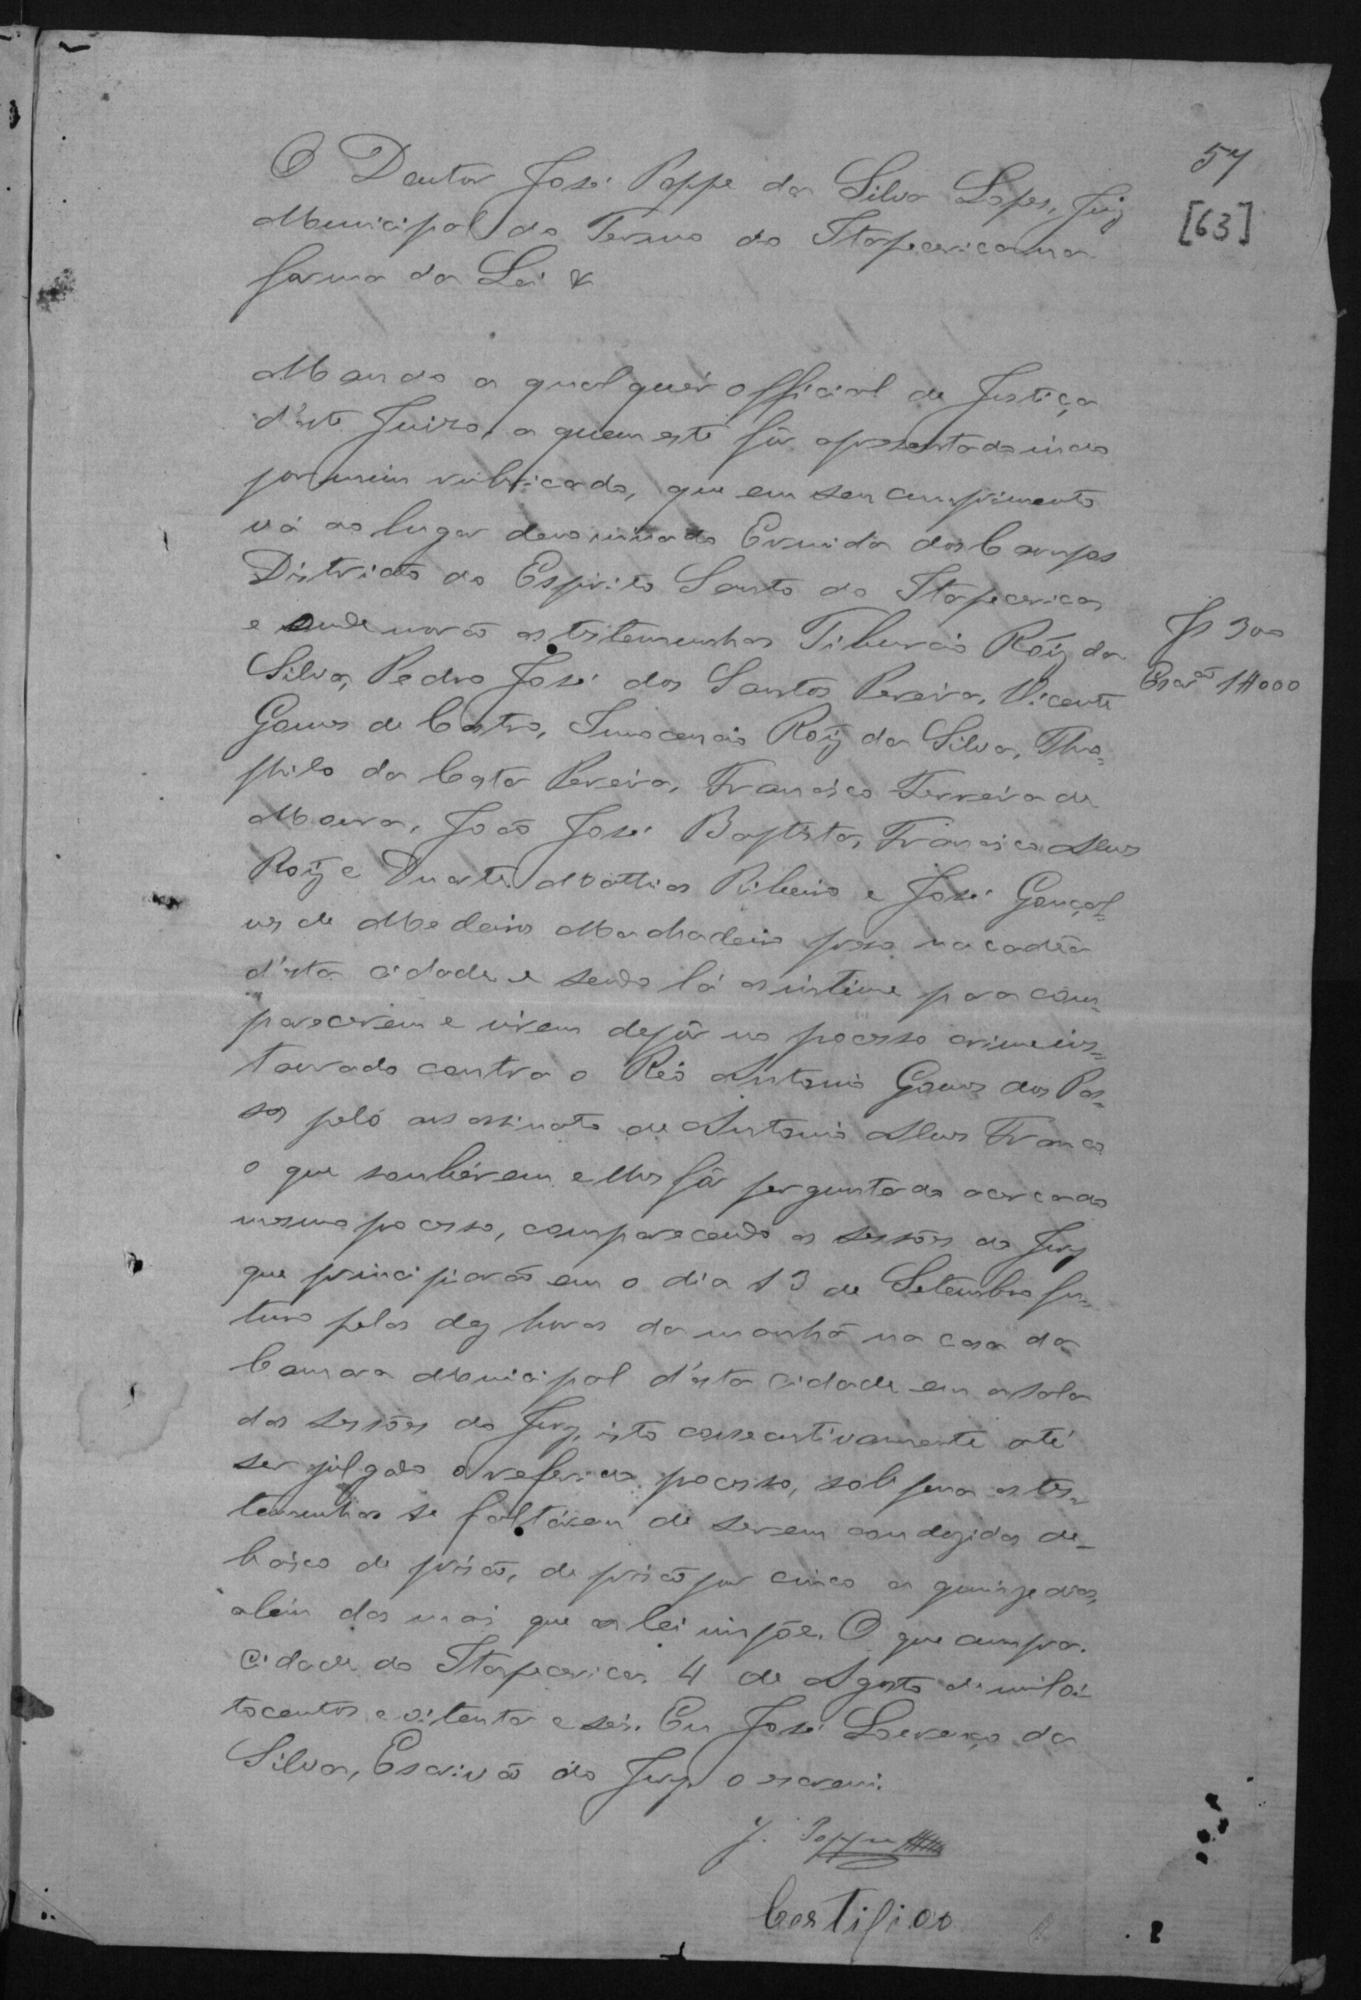 57
[63]
O Doutor José Poppe da Silva Lopes, Juiz
Municipal do Termo do Itapecerica na
forma da Lei &
Mando a qualquér official de Justiça
d'este Juizo, a quem este fôr apresentado indo
por mim rubricado, que em seu cumprimento
vá ao lugar denominado Ermida dos Campos
Districto do Espirito Santo do Itapecerica
e onde morão as testemunhas Tiburcio Roiz da
Js 300
Silva, Pedro José dos Santos Pereira, Vicente
Escram 1#000
Gomes de Castro, Innocencio Roiz da Silva, Theo-
philo da Costa Pereira, Francisco Ferreira de
Moura, João José Baptista, Francisco Alves
Roiz e Duarte Mattias Ribeiro e José Gonçal-
ves de Medeiros Machadeiro preso na cadêa
d'esta cidade e sendo lá as intime para com-
parecerem e virem depôr no pocesso crime ins-
taurado contra o Reó Antonio Gomes dos Pas-
sos peló assassinato de Antonio Alves Franco
o que soubérem e lhes fôr perguntado acerca do
mesmo pocesso, comparecendo as sessões do Jury
que principiarão em o dia 13 de Setembro fu-
turo pelas dez horas da manhã na casa da
Camara Municipal d'esta cidade em a sala
das sessões do Jury, isto consecutivamente até
ser julgado o referido pocesso, sob pena as tes-
temunhas se faltárem de serem conduzidas de-
baixo de prisão, de prisão por cinco a quinze dias,
alem das mais que a lei impõe. O que cumpra.
Cidade do Itapecerica 4 de Agosto de mil oi-
tocentos e oitenta e seis. Eu José Lourenço da
Silva, Escrivão do Jury o escrevi.
J. Poppe
Certifico